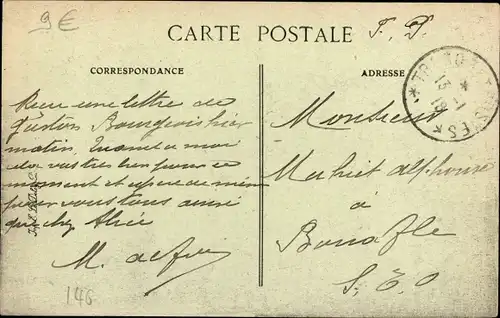 9 €
CARTE POSTALE
F. P.
CORRESPONDANCE
ADRESSE
TRÉSOR ET POSTES
Reçu une lettre de
Gaston Bourgeois hier
matin. Quand a moi
va très bien pour ce
moment et espère de même
pour vous tous ainsi
que chez Alice
M.
Monsieur
Mahiet alphonse
à
Bonafle
S. E. O
146